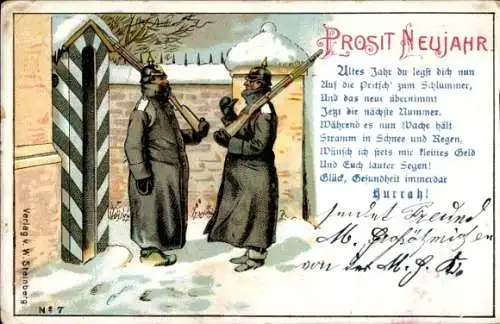 PROSIT NEUJAHR
Altes Jahr du legst dich nun
Auf die Pritsch' zum Schlummer,
Und das neue übernimmt
Jetzt die nächste Nummer.
Während es nun Wache hält
Stramm in Schnee und Regen,
Wünsch ich stets mir kleines Geld
Und Euch lauter Segen!
Glück, Gesundheit immerdar
Hurrah!
sendet Freund
M.
von der M.
Verlag v. W. Steinberg.
No 7